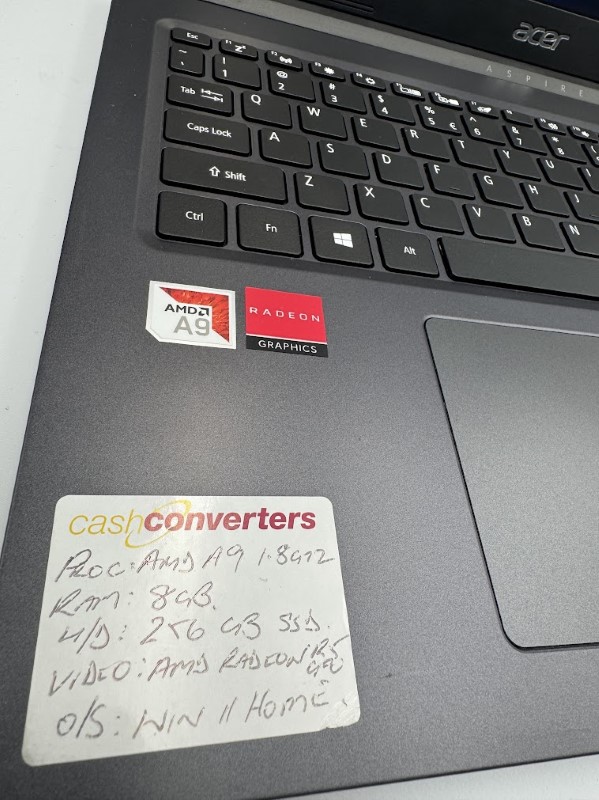 acer
ASPIRE
Esc F1 F2 F3 F4
! 1 @ 2 # 3 $ 4 % 5 € ^ 6 & 7 * 8
Tab Q W E R T Y U
Caps Lock A S D F G H J
Shift Z X C V B N
Ctrl Fn Alt
AMD
A9
RADEON
GRAPHICS
cashconverters
PROC: AMD A9 1.8GHZ
RAM: 8GB.
H/D: 256 GB SSD.
VIDEO: AMD RADEON R5
GPU
O/S: WIN 11 HOME.